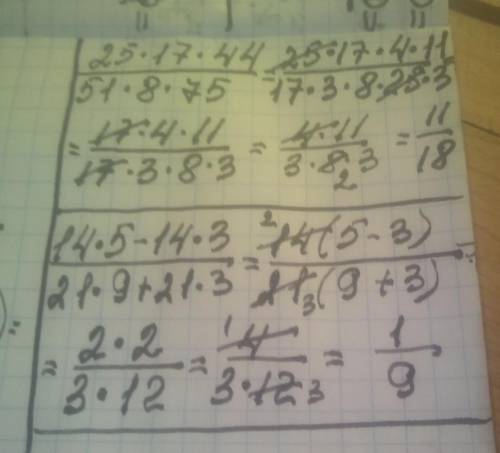 25·17·44/51·8·75 = 25·17·4·11/17·3·8·25·3
= 17·4·11/17·3·8·3 = 4·11/3·8·3 2 = 11/18
14·5-14·3/21·9+21·3 = 2 14(5-3)/21 3(9+3) =
= 2·2/3·12 = 1 4/3·12 3 = 1/9